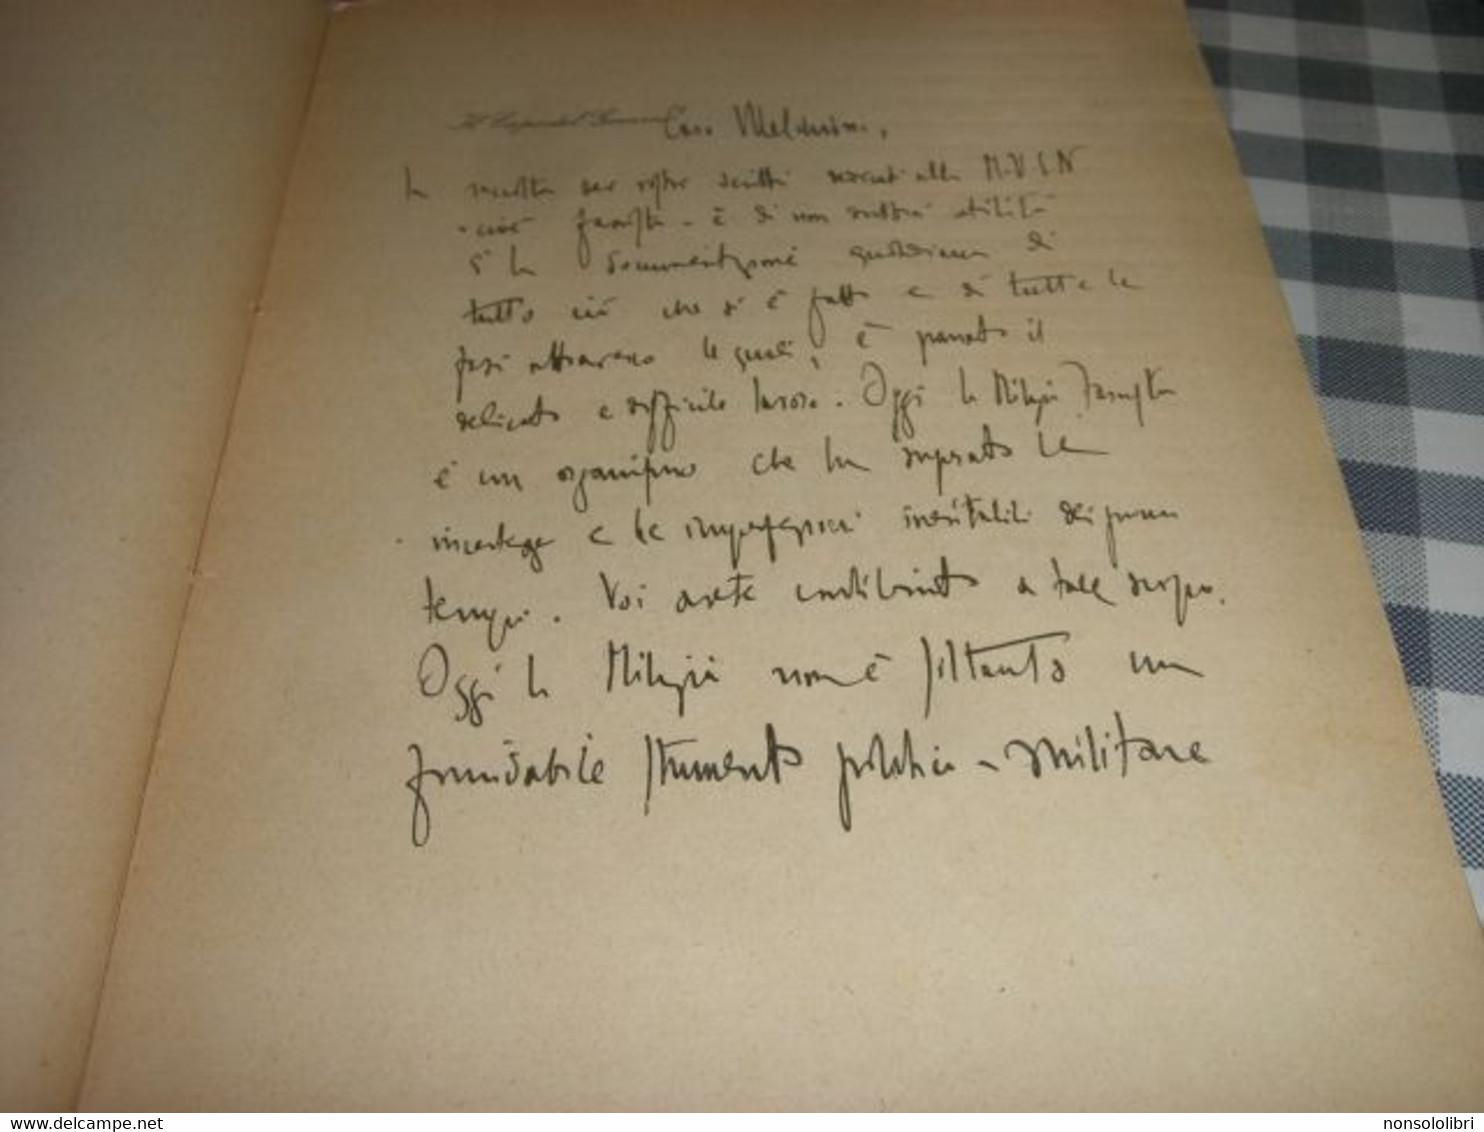 Il Capo del Governo
Caro Melchiori,
la raccolta dei vostri scritti dedicati alla M.V.S.N
cioè fascista - è di non dubbia utilità
È la documentazione quotidiana di
tutto ciò che si è fatto e di tutte le
fasi attraverso le quali, è passato il
delicato e difficile lavoro. Oggi la Milizia Fascista
è un organismo che ha superato le
incertezze e le imperfezioni inevitabili dei primi
tempi. Voi avete contribuito a tale scopo.
Oggi la Milizia non è soltanto un
formidabile strumento politico - militare
delcampe.net
nonsololibri